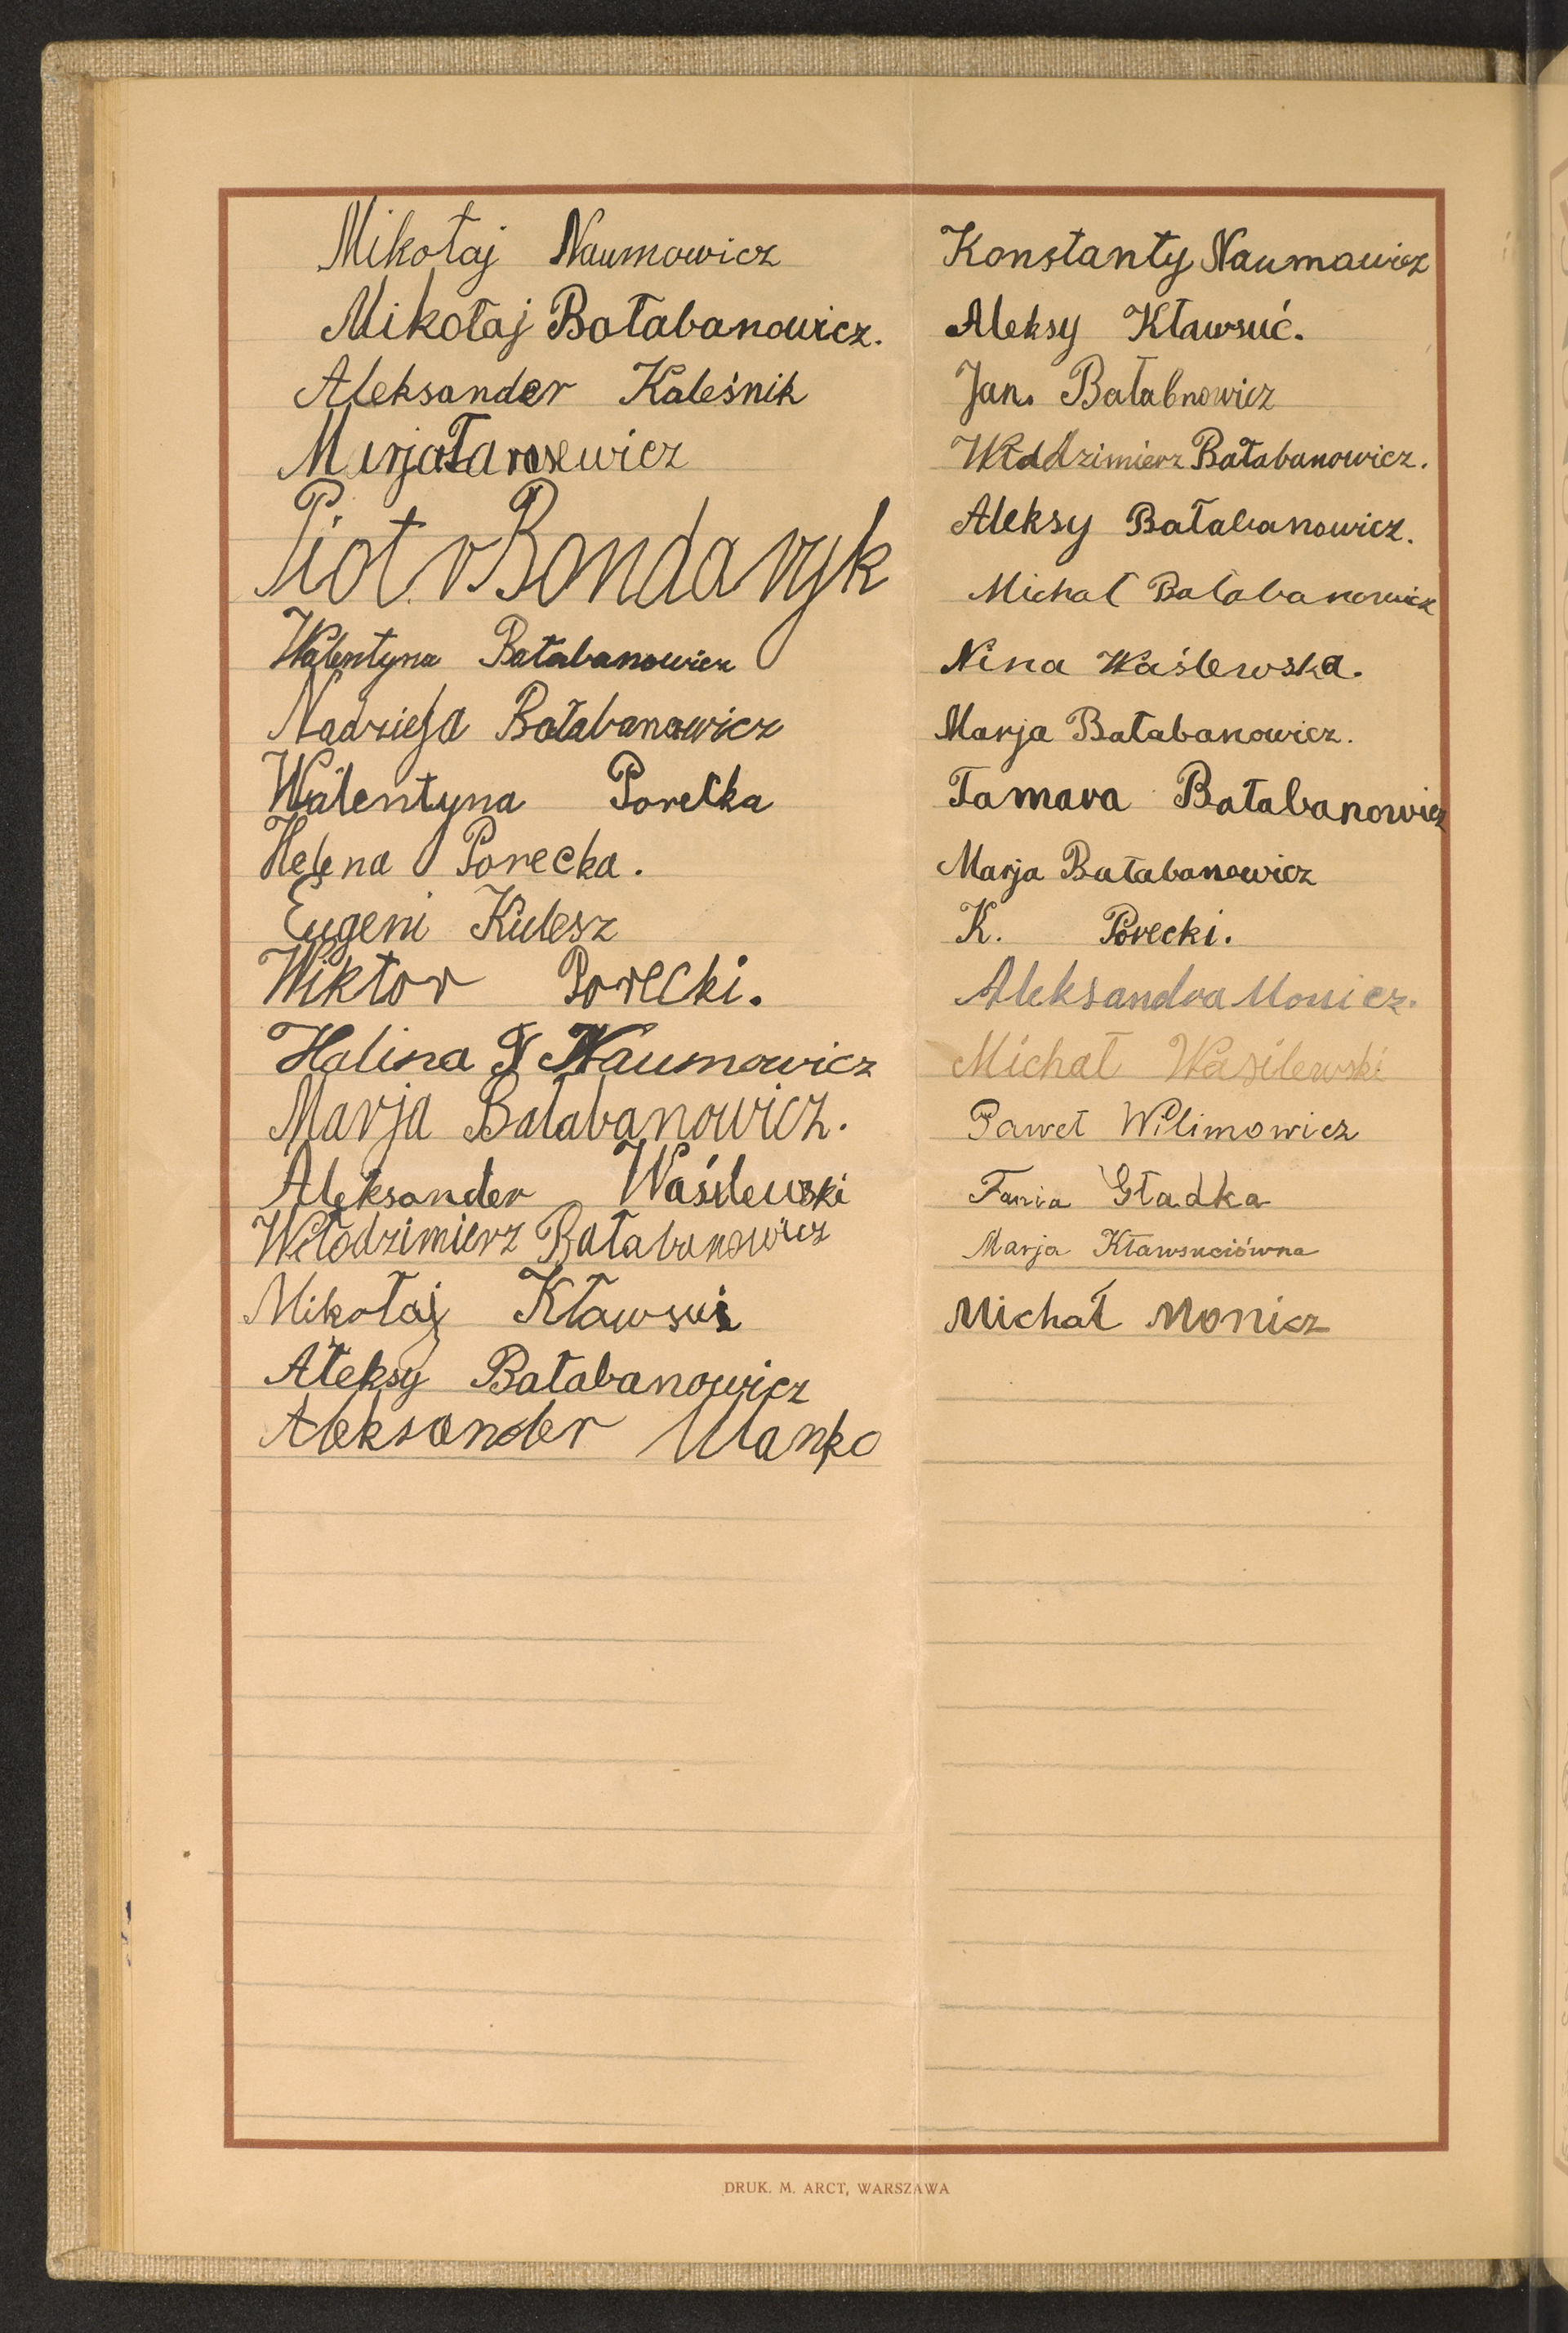 Mikołaj Naumowicz
Mikołaj Bałabanowicz.
Aleksander Kaleśnik
Marja Tarasewicz
Piotr Bondaryk
Walentyna Bałabanowicz
Nadzieja Bałabanowicz
Walentyna Porecka
Helena Porecka.
Eugeni Kulesz
Wiktor Porecki.
Halina Naumowicz
Marja Bałabanowicz.
Aleksander Waśilewski
Włodzimierz Bałabanowicz
Mikołaj Kławsuś
Aleksy Bałabanowicz
Aleksander Ulanko
Konstanty Naumowicz
Aleksy Kławsuć.
Jan. Bałabnowicz
Włodzimierz Bałabanowicz.
Aleksy Bałabanowicz.
Michał Bałabanowicz
Nina Waślewska.
Marja Bałabanowicz.
Tamara Bałabanowicz
Marja Bałabanowicz
K. Porecki.
Aleksandra Monicz.
Michał Wasilewski
Paweł Wilimowicz
Fania Gładka
Marja Kławsuciówna
Michał Monicz
DRUK. M. ARCT, WARSZAWA